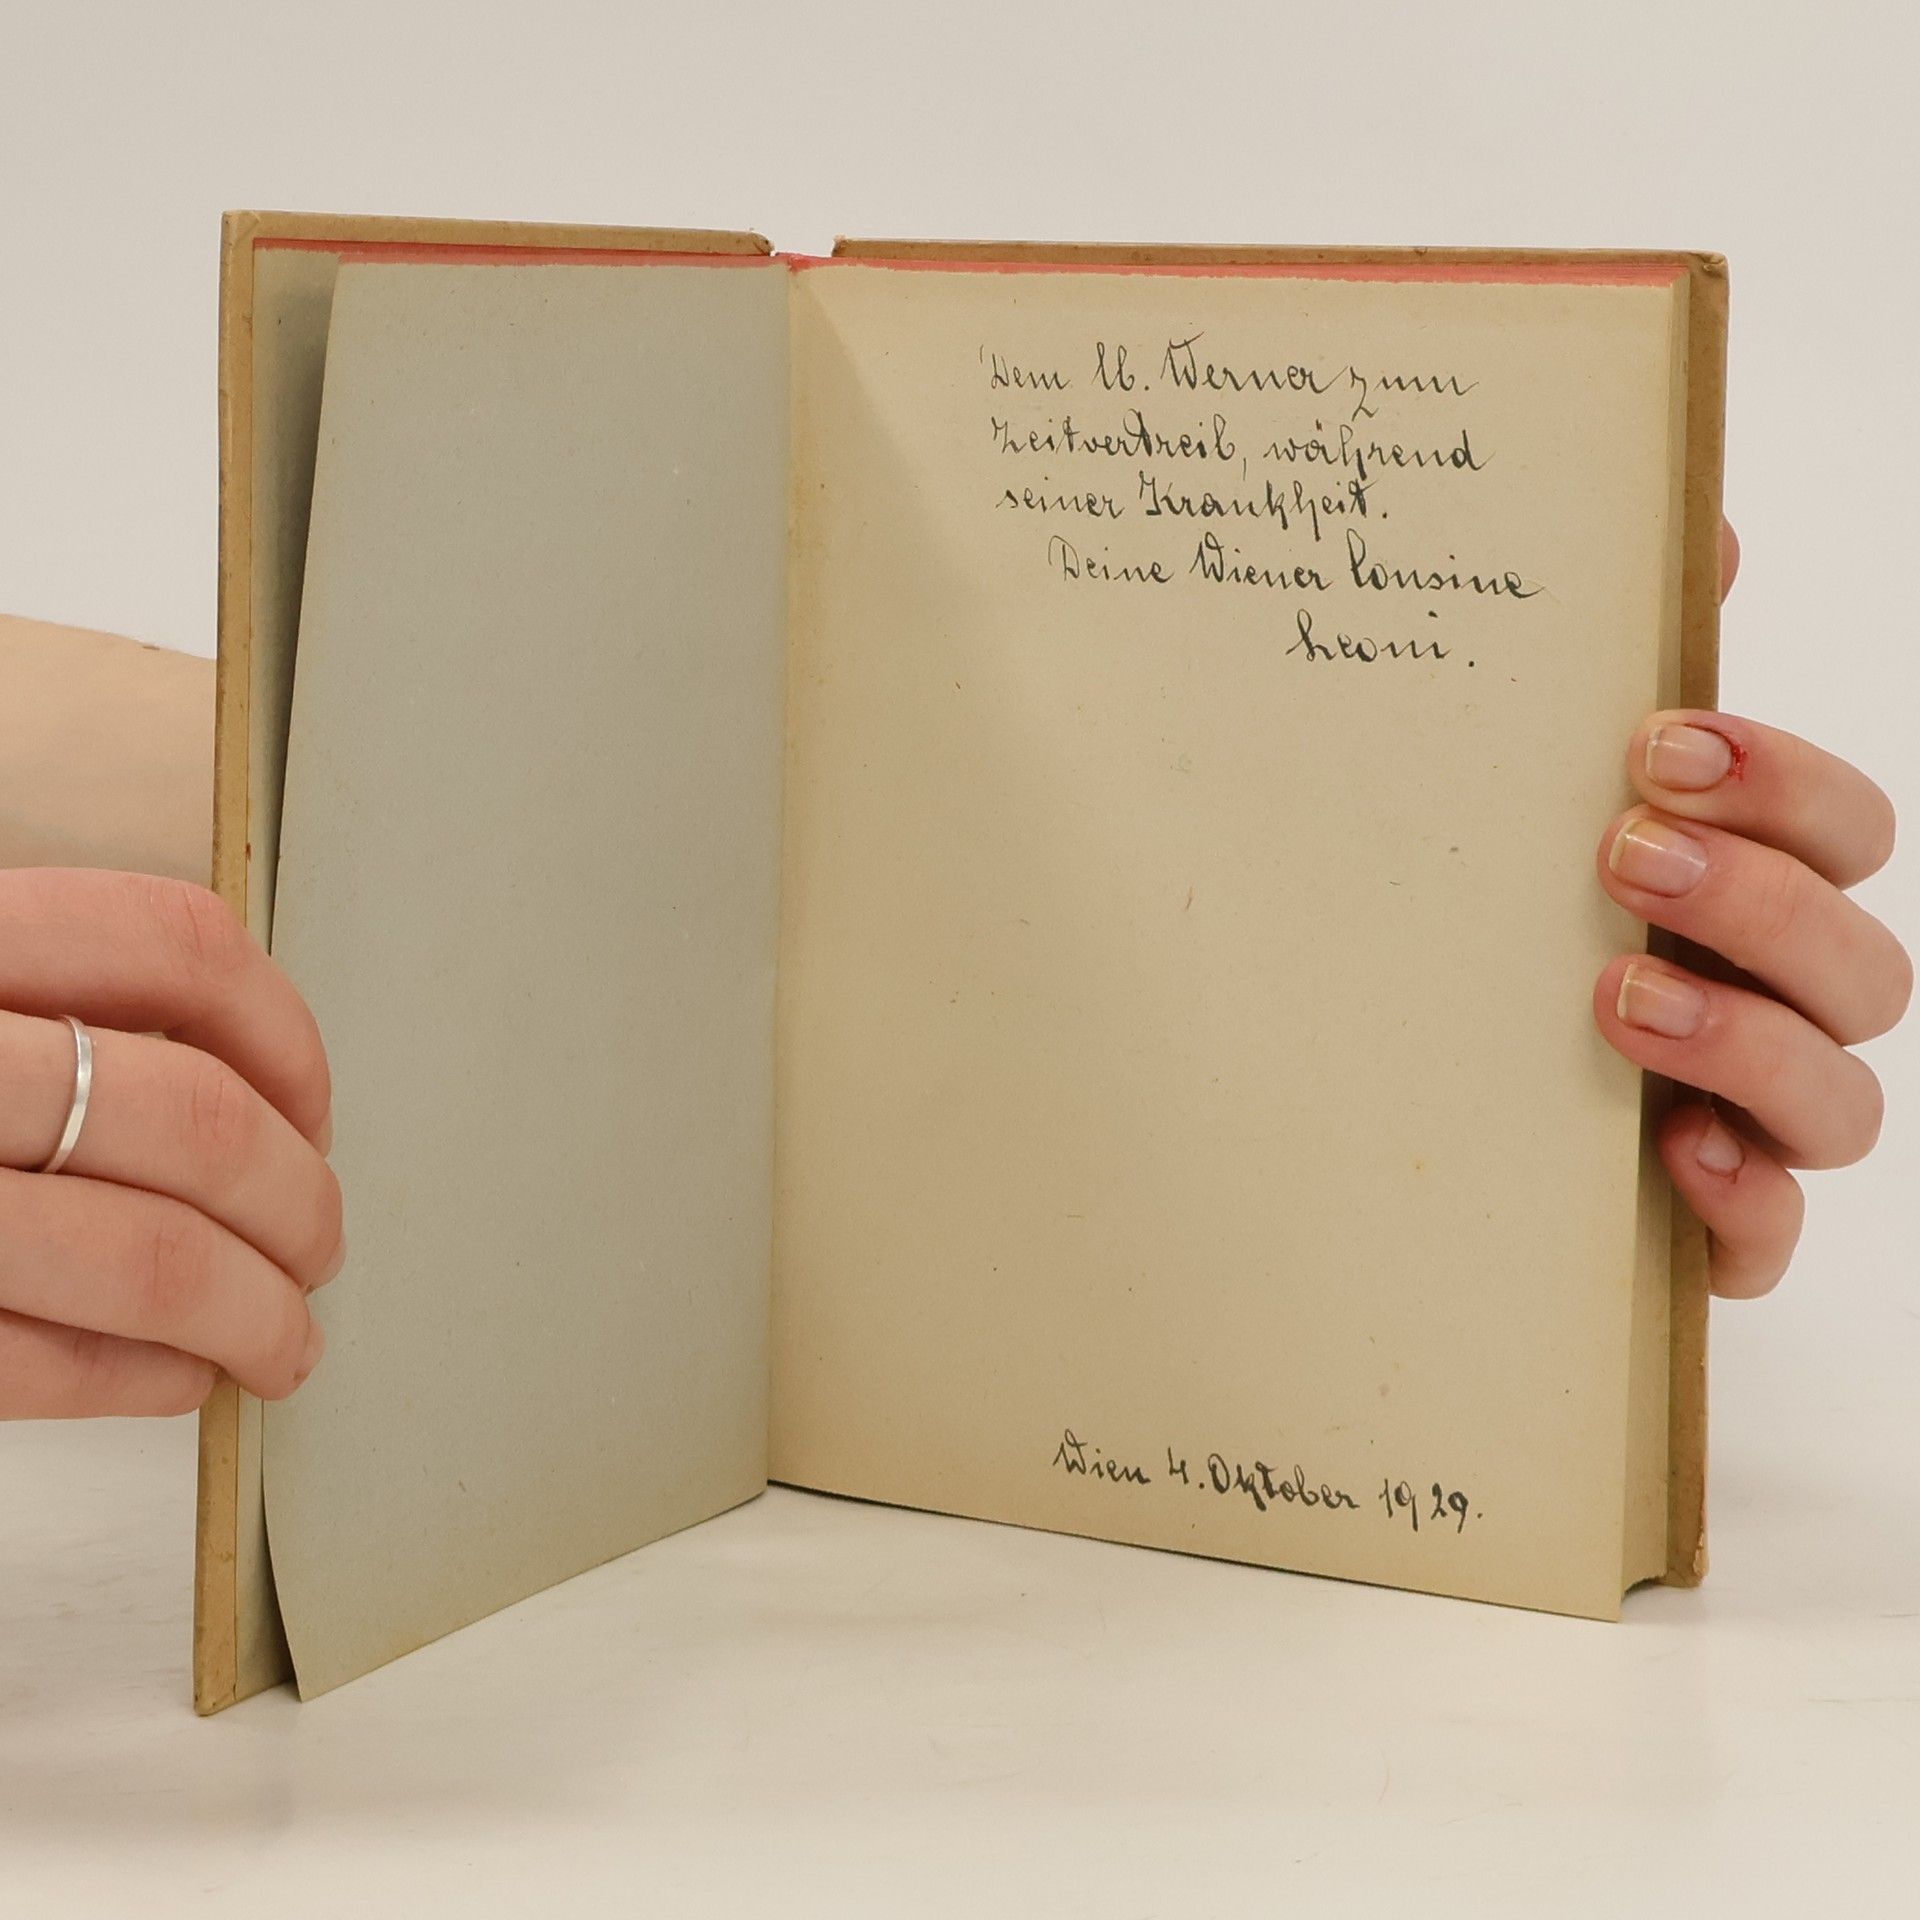 Dem lb. Werner zum
Zeitvertreib, während
seiner Krankheit.
Deine Wiener Cousine
Leoni.
Wien 4. Oktober 1929.